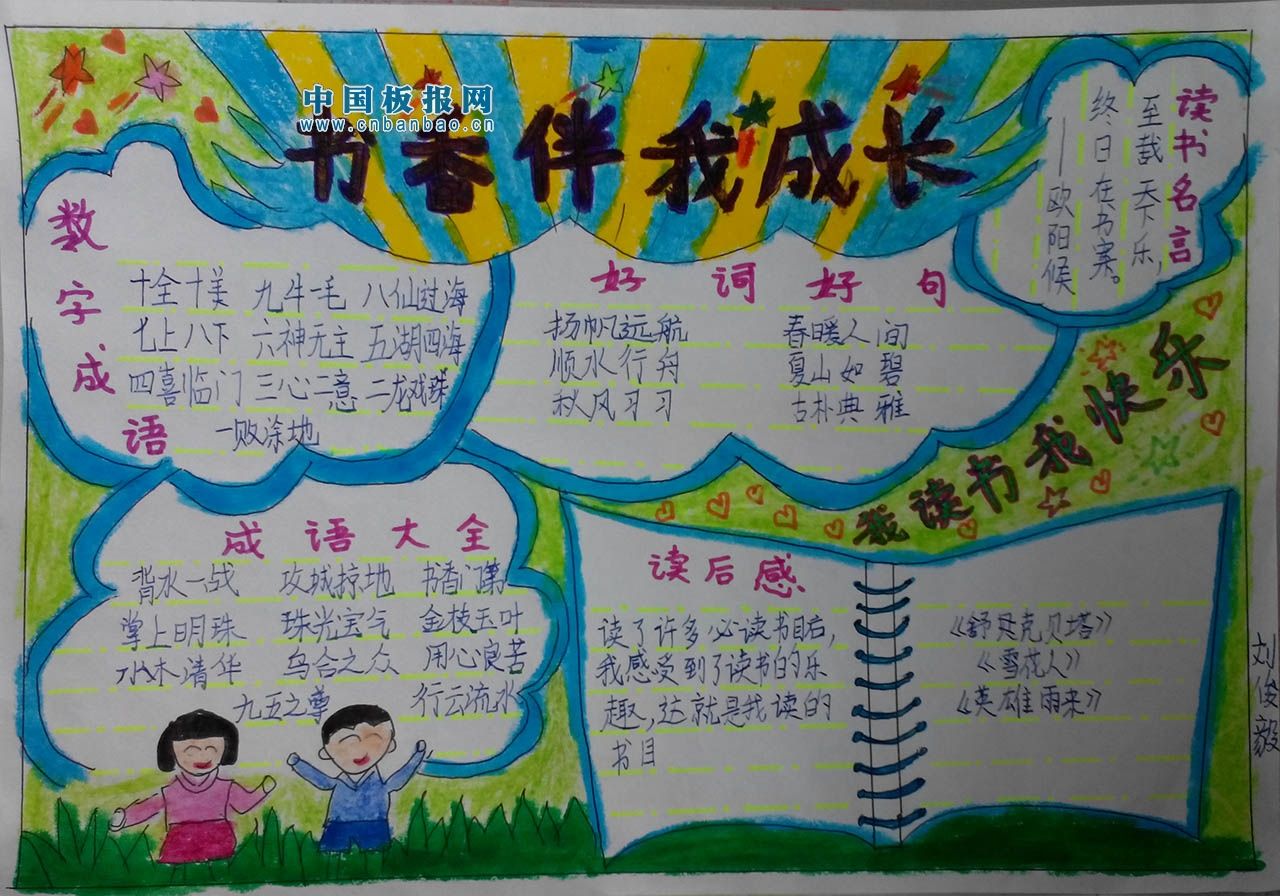 中国板报网
www.cnbanbao.cn
书香伴我成长
读书名言
至哉天下乐,
终日在书案。
——欧阳候
数字成语
十全十美 九牛一毛 八仙过海
七上八下 六神无主 五湖四海
四喜临门 三心二意 二龙戏珠
一败涂地
好词好句
扬帆远航 春暖人间
顺水行舟 夏山如碧
秋风习习 古朴典雅
我读书我快乐
成语大全
背水一战 攻城掠地 书香门第
掌上明珠 珠光宝气 金枝玉叶
水木清华 乌合之众 用心良苦
九五之尊 行云流水
读后感
读了许多必读书目后,
我感受到了读书的乐
趣,这就是我读的
书目
《舒贝克贝塔》
《雪花人》
《英雄雨来》
刘俊毅